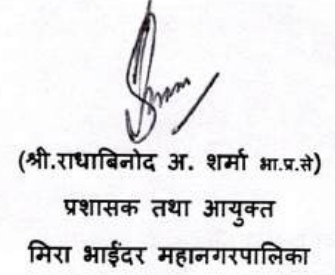 (श्री.राधाबिनोद अ. शर्मा भा.प्र.से)
प्रशासक तथा आयुक्त
मिरा भाईंदर महानगरपालिका